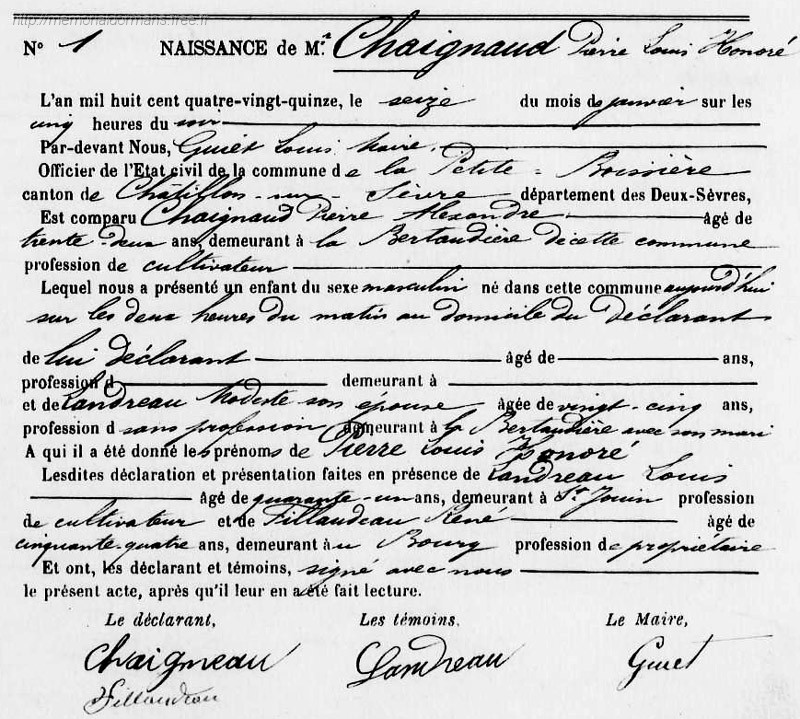 http://memorialdormans.free.fr
N° 1 NAISSANCE de M. Chaignaud Pierre Louis Honoré
L'an mil huit cent quatre-vingt-quinze, le seize du mois de janvier sur les
cinq heures du soir
Par-devant Nous, Guiet Louis Maire.
Officier de l'Etat civil de la commune de la Petite-Boissière
canton de Châtillon-sur-Sèvre département des Deux-Sèvres,
Est comparu Chaignaud Pierre Alexandre âgé de
trente-deux ans, demeurant à la Bertaudière de cette commune
profession de cultivateur
Lequel nous a présenté un enfant du sexe masculin né dans cette commune aujourd'hui
sur les deux heures du matin au domicile du déclarant
de lui déclarant âgé de ans,
profession d demeurant à
et de Landreau Modeste son épouse âgée de vingt-cinq ans,
profession d sans profession demeurant à la Bertaudière avec son mari
A qui il a été donné les prénoms de Pierre Louis Honoré
Lesdites déclaration et présentation faites en présence de Landreau Louis
âgé de quarante-un ans, demeurant à St Jouin profession
de cultivateur et de Fillaudeau René âgé de
cinquante-quatre ans, demeurant au Bourg profession de propriétaire
Et ont, les déclarant et témoins, signé avec nous
le présent acte, après qu'il leur en a été fait lecture.
Le déclarant, Les témoins, Le Maire,
Chaigneau Landreau Guiet
Fillaudeau